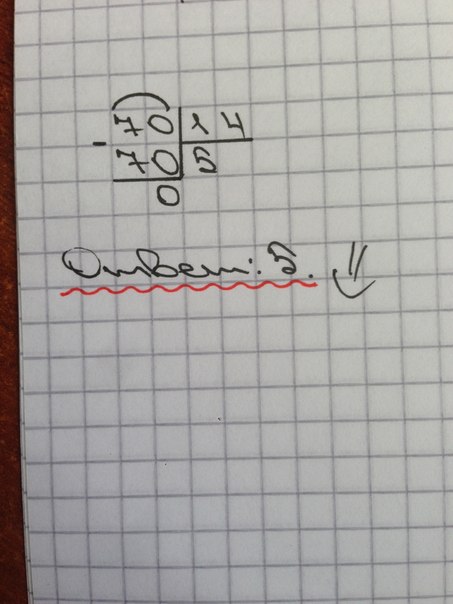 70 14
- 70 5
0
Ответ: 5.